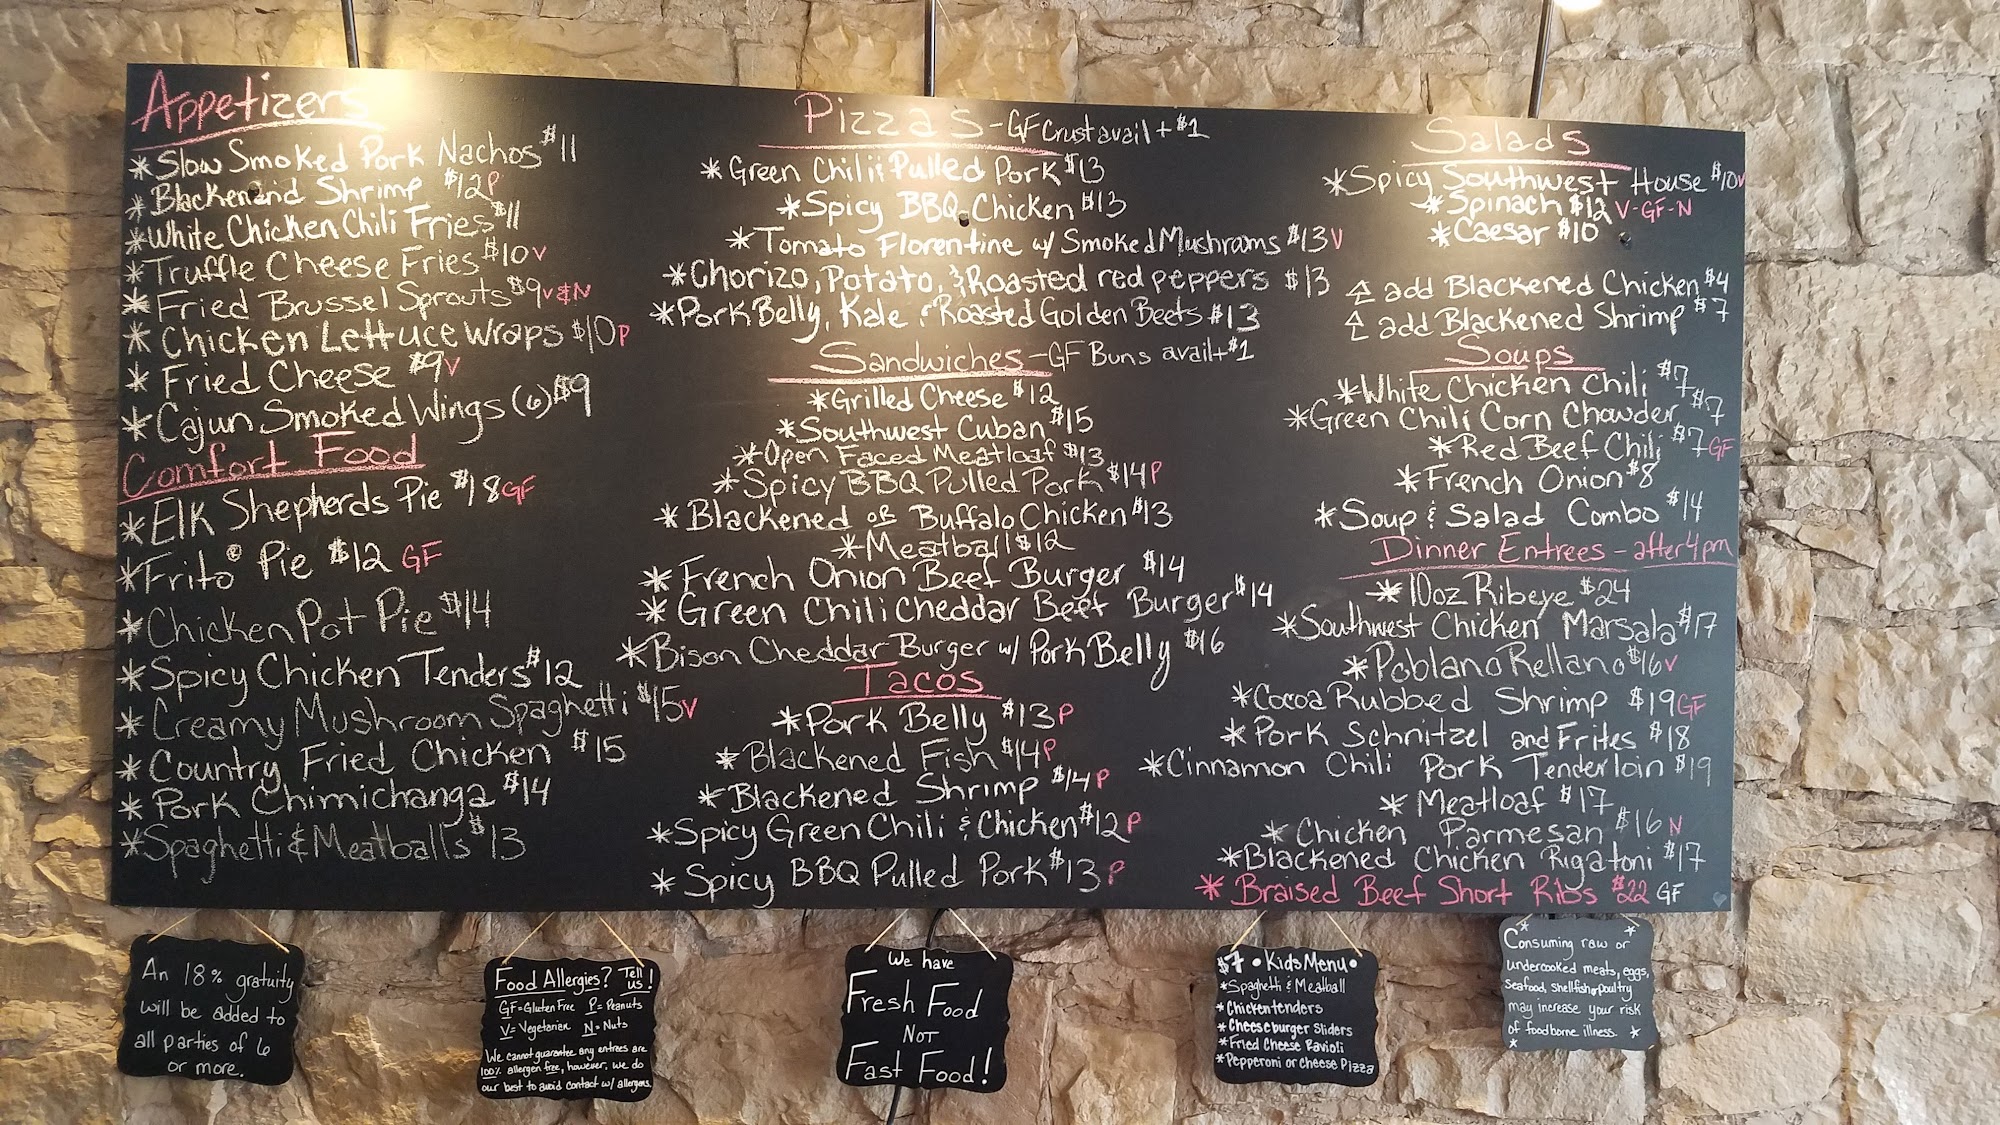 Appetizers
*Slow Smoked Pork Nachos $11
*Blackened Shrimp $12 P
*White Chicken Chili Fries $11
*Truffle Cheese Fries $10 V
*Fried Brussel Sprouts $9 V&N
*Chicken Lettuce Wraps $10 P
*Fried Cheese $9 V
*Cajun Smoked Wings (6) $9
Comfort Food
*Elk Shepherds Pie $18 GF
*Frito® Pie $12 GF
*Chicken Pot Pie $14
*Spicy Chicken Tenders $12
*Creamy Mushroom Spaghetti $15 V
*Country Fried Chicken $15
*Pork Chimichanga $14
*Spaghetti & Meatballs $13
Pizzas - GF Crust avail + $1
*Green Chili & Pulled Pork $13
*Spicy BBQ Chicken $13
*Tomato Florentine w/ Smoked Mushrooms $13 V
*Chorizo, Potato, & Roasted red peppers $13
*Pork Belly, Kale & Roasted Golden Beets $13
Sandwiches - GF Buns avail + $1
*Grilled Cheese $12
*Southwest Cuban $15
*Open Faced Meatloaf $13
*Spicy BBQ Pulled Pork $14 P
*Blackened or Buffalo Chicken $13
*Meatball $12
*French Onion Beef Burger $14
*Green Chili Cheddar Beef Burger $14
*Bison Cheddar Burger w/ Pork Belly $16
Tacos
*Pork Belly $13 P
*Blackened Fish $14 P
*Blackened Shrimp $14 P
*Spicy Green Chili & Chicken $12 P
*Spicy BBQ Pulled Pork $13 P
Salads
*Spicy Southwest House $10 V
*Spinach $12 V-GF-N
*Caesar $10
add Blackened Chicken $4
add Blackened Shrimp $7
Soups
*White Chicken Chili $7
*Green Chili Corn Chowder $7
*Red Beef Chili $7 GF
*French Onion $8
*Soup & Salad Combo $14
Dinner Entrees - after 4pm
*10oz Ribeye $24
*Southwest Chicken Marsala $17
*Poblano Rellano $16 V
*Cocoa Rubbed Shrimp $19 GF
*Pork Schnitzel and Frites $18
*Cinnamon Chili Pork Tenderloin $19
*Meatloaf $17
*Chicken Parmesan $16 N
*Blackened Chicken Rigatoni $17
*Braised Beef Short Ribs $22 GF
An 18% gratuity
will be added to
all parties of 6
or more.
Food Allergies? Tell us!
GF=Gluten Free P=Peanuts
V=Vegetarian N=Nuts
We cannot guarantee any entrees are
100% allergen free, however, we do
our best to avoid contact w/ allergens.
We have
Fresh Food
NOT
Fast Food!
$7 • Kids Menu •
*Spaghetti & Meatball
*Chicken tenders
*Cheeseburger Sliders
*Fried Cheese Ravioli
*Pepperoni or Cheese Pizza
Consuming raw or
undercooked meats, eggs,
seafood, shellfish, poultry
may increase your risk
of foodborne illness.